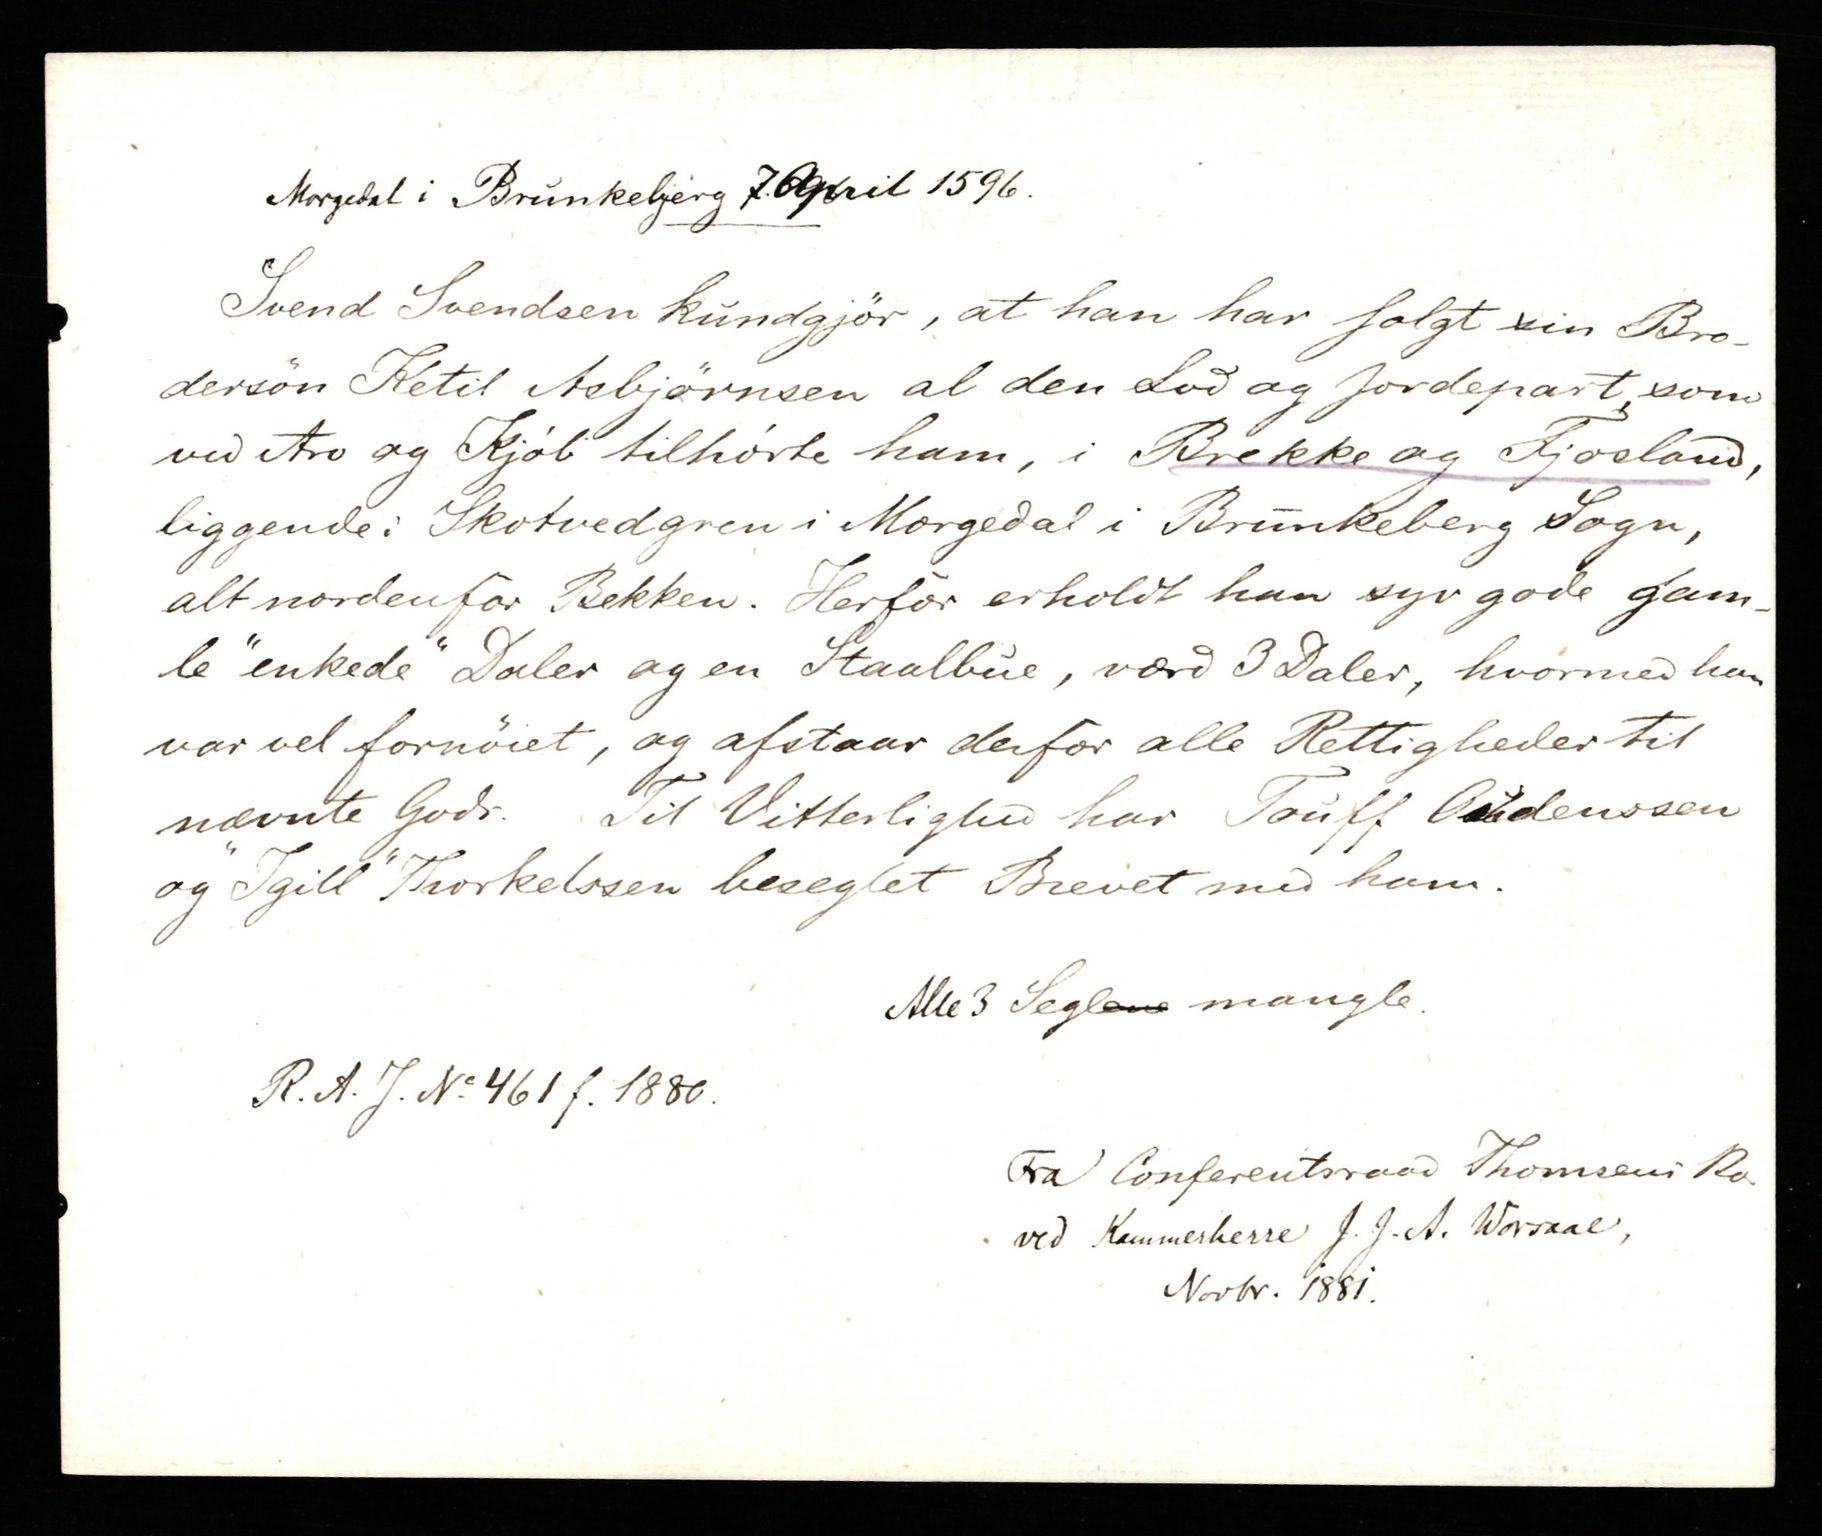 Morgedal i Brunkebjerg 7. April 1596.
Svend Svendsen kundgjör, at han har solgt sin Bro-
dersön Ketil Asbjörnsen al den Lod og Jordepart, som
ved Arv og Kjöb tilhörte ham, i Brekke og Fjosland,
liggende i Skotvedgren i Morgedal i Brunkeberg Sogn,
alt nordenfor Bekken. Herfor erholdt han syv gode gam-
le "enkede" Daler og en Staalbue, værd 3 Daler, hvormed han
var vel fornöiet, og afstaar derfor alle Rettigheder til
nævnte Gods. Til Vitterlighed har Touff Oudenssen
og "Igill" Thorkelssen beseglet Brevet med ham.
Alle 3 Segl mangle.
R. A. J. No. 461 f. 1880.
Fra Conferentsraad Thomsens
ved Kammerherre J. J. A. Worsaae,
Novbr. 1881.